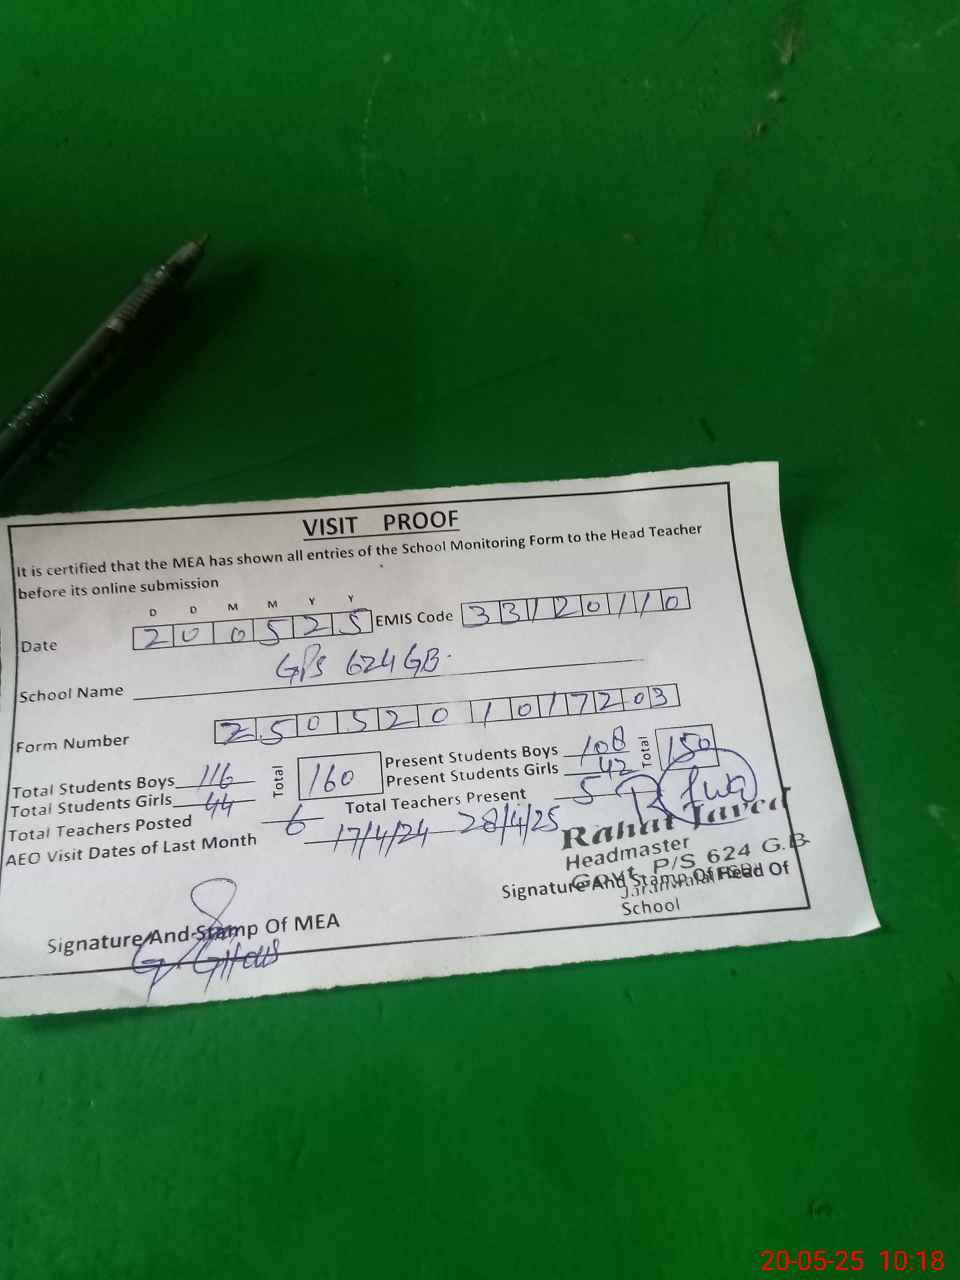 VISIT PROOF
It is certified that the MEA has shown all entries of the School Monitoring Form to the Head Teacher
before its online submission
D D M M Y Y
Date 200525 EMIS Code 33120110
School Name GPS 624 GB.
Form Number 2505201017203
Total Students Boys 116 Total 160 Present Students Boys 108 Total 150
Total Students Girls 44 Present Students Girls 42
Total Teachers Posted 6 Total Teachers Present 5
AEO Visit Dates of Last Month 17/4/24 28/4/25
Rahat Javed
Headmaster
Govt. P/S 624 G.B
Signature And Stamp Of Head Of
School
Signature And Stamp Of MEA
20-05-25 10:18